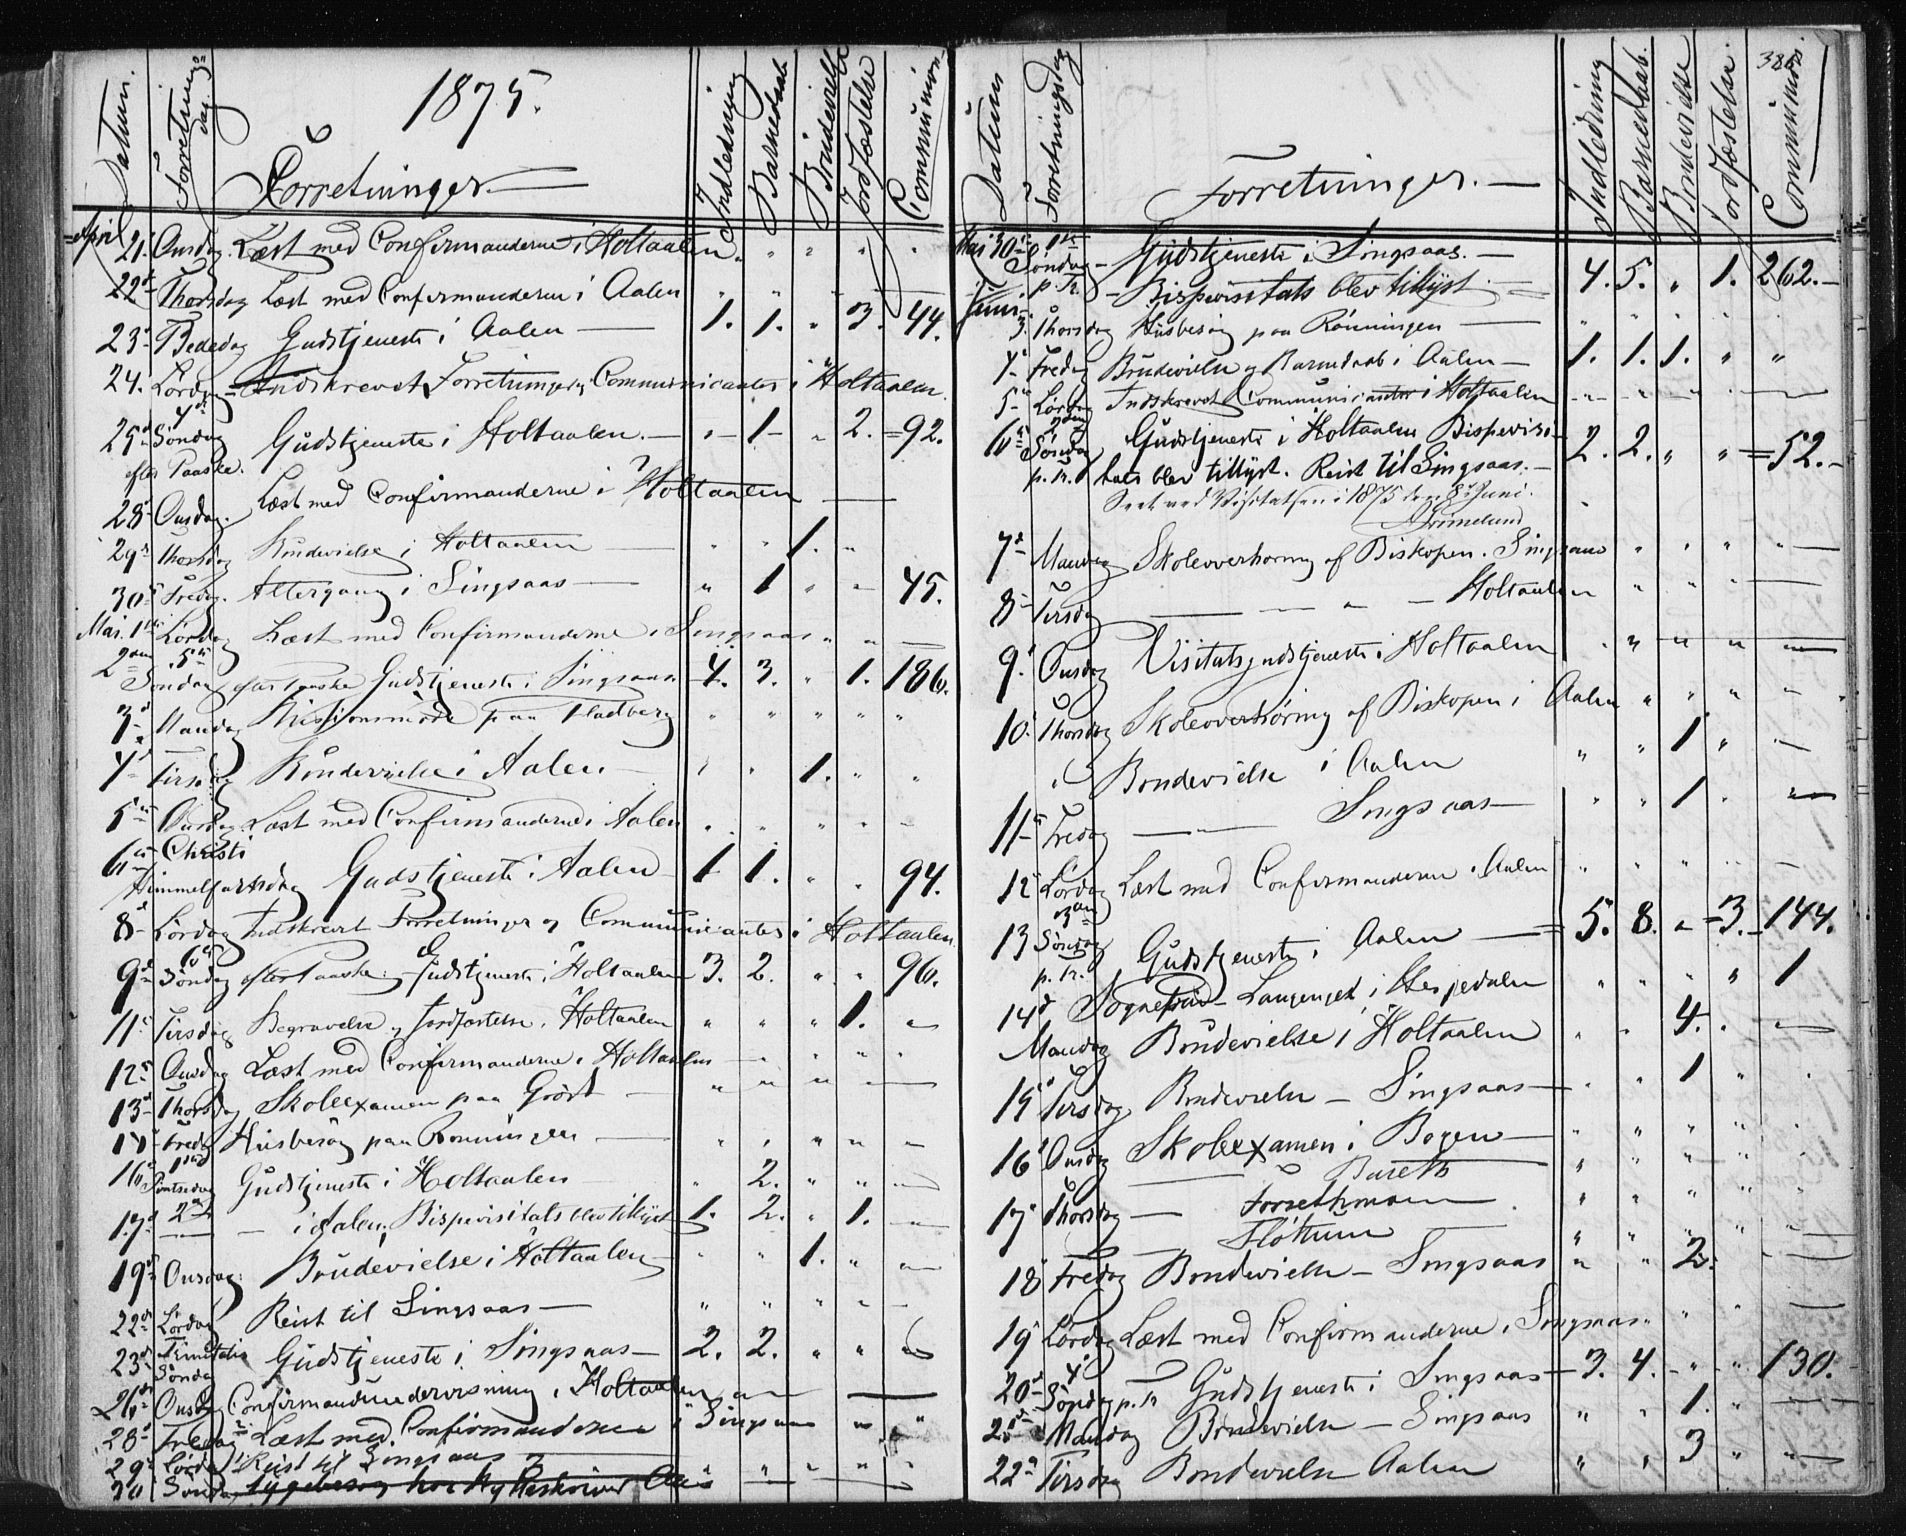 1875.
Datum. Forretningsdag. Forretninger. Indledning Barnedaab Brudevielse Jordfæstelse Communion
April 21. Onsdag. Læst med Confirmanderne i Holtaalen " " " "
22d Thorsdag Læst med Confirmanderne i Aalen " "
23d Bededag Gudstjeneste i Aalen — 1. 1. " 3. 44.
24. Lørdag Indskrevet Forretninger og Communicanter i Holtaalen.
25d 4de Søndag efter Paaske. Gudstjeneste i Holtaalen. — " 1 " 2. 92.
28d Onsdag. Læst med Confirmanderne i Holtaalen —
29d Thorsdag Brudevielse i Holtaalen — " " 1. "
30d Fredag. Altergang i Singsaas — " 1 " " 45.
Mai. 1ste Lørdag Læst med Confirmanderne i Singsaas " " —
2den 5te Søndag efter Paaske Gudstjeneste i Singsaas 4. 3. " 1. 186.
3d Mandag Missionsmøde paa Fladberg " " " " "
4d Tirsdag Brudevielse i Aalen — " " 1. " "
5te Onsdag Læst med Confirmanderne i Aalen " " " " "
6te Christi Himmelfartsdag Gudstjeneste i Aalen 1 1. " " 94.
8d Lørdag Indskrevet Forretninger og Communicanter i Holtaalen.
9d 6te Søndag efter Paaske. Gudstjeneste i Holtaalen 3. 2. " " 96.
11te Tirsdag Begravelse og Jordfæstelse i Holtaalen " " " 1. "
12te Onsdag Læst med Confirmanderne i Holtaalen " " " "
13d Thorsdag Skoleexamen paa Grødt — " " " " —
14d Fredag Husbesøg paa Rønningen — " " " " "
16d 1ste Pintsedag Gudstjeneste i Holtaalen " 2. " " "
17d 2den — — i Aalen, Bispevisitats blev tillyst 1. 2. " 1. "
19d Onsdag. Brudevielse i Holtaalen — " " 1. " "
22d Lørdag Reist til Singsaas — " " " " "
23d Trinitatis Søndag Gudstjeneste i Singsaas — 2. 2. " " "
26d Onsdag Confirmandundervisning i Holtaalen
28d Fredag Læst med Confirmanderne i Singsaas " "
29d Lørdag Reist til Singsaas " " " " "
30 Søndag
Datum Forretningsdag Forretninger. — Indledning Barnedaab. Brudevielse Jordfæstelse. Communion
Mai 30te 1ste Søndag p. Tr. Gudstjeneste i Singsaas. —
Bispevisitats blev tillyst. — 4. 5. " 1. 262. —
Juni 3. Thorsdag Husbesøg paa Rønningen — " " " " "
4d Fredag Brudevielse og Barnedaab i Aalen — 1. 1. 1. " "
5te Lørdag Indskrevet Communicanter i Holtaalen " " " " —
6te 2den Søndag p. Tr. Gudstjeneste i Holtaalen Bispevisi- 2. 2. " " 52. —
tats blev tillyst. Reist til Singsaas. —
Seet ved Visitatsen i 1875 den 8d Juni.
Grimelund
7d Mandag Skoleoverhøring af Biskopen. Singsaas " " " "
8d Tirsdag — — " — Holtaalen " " " —
9d Onsdag Visitatsgudstjeneste i Holtaalen " " " " —
10d Thorsdag Skoleoverhøring af Biskopen i Aalen " " " "
Brudevielse i Aalen " " 1 " —
11te Fredag — — Singsaas — " " 1 " "
12te Lørdag Læst med Confirmanderne i Aalen " " " " —
13 3die Søndag p. Tr. Gudstjeneste i Aalen — 5. 8. " 3. 144.
14d Sognebud — i Hesjedalen " " " " 1
Mandag Brudevielse i Holtaalen " " 4. " —
15d Tirsdag Brudevielse — Singsaas — " " 1 " "
16d Onsdag Skoleexamen i Bogen — " " " " "
— Bureth " " " " "
17d Thorsdag — Forsethmoen " " " " "
— Fløttum — " " " " "
18d Fredag Brudevielse — Singsaas " " 2. —
19d Lørdag Læst med Confirmanderne i Singsaas " " —
20d 4d Søndag p. Tr Gudstjeneste i Singsaas — 3. 4. " " 130.
Mandag Brudevielse — Singsaas " " 1. " —
22d Tirsdag Brudevielse Aalen " " 3 " —